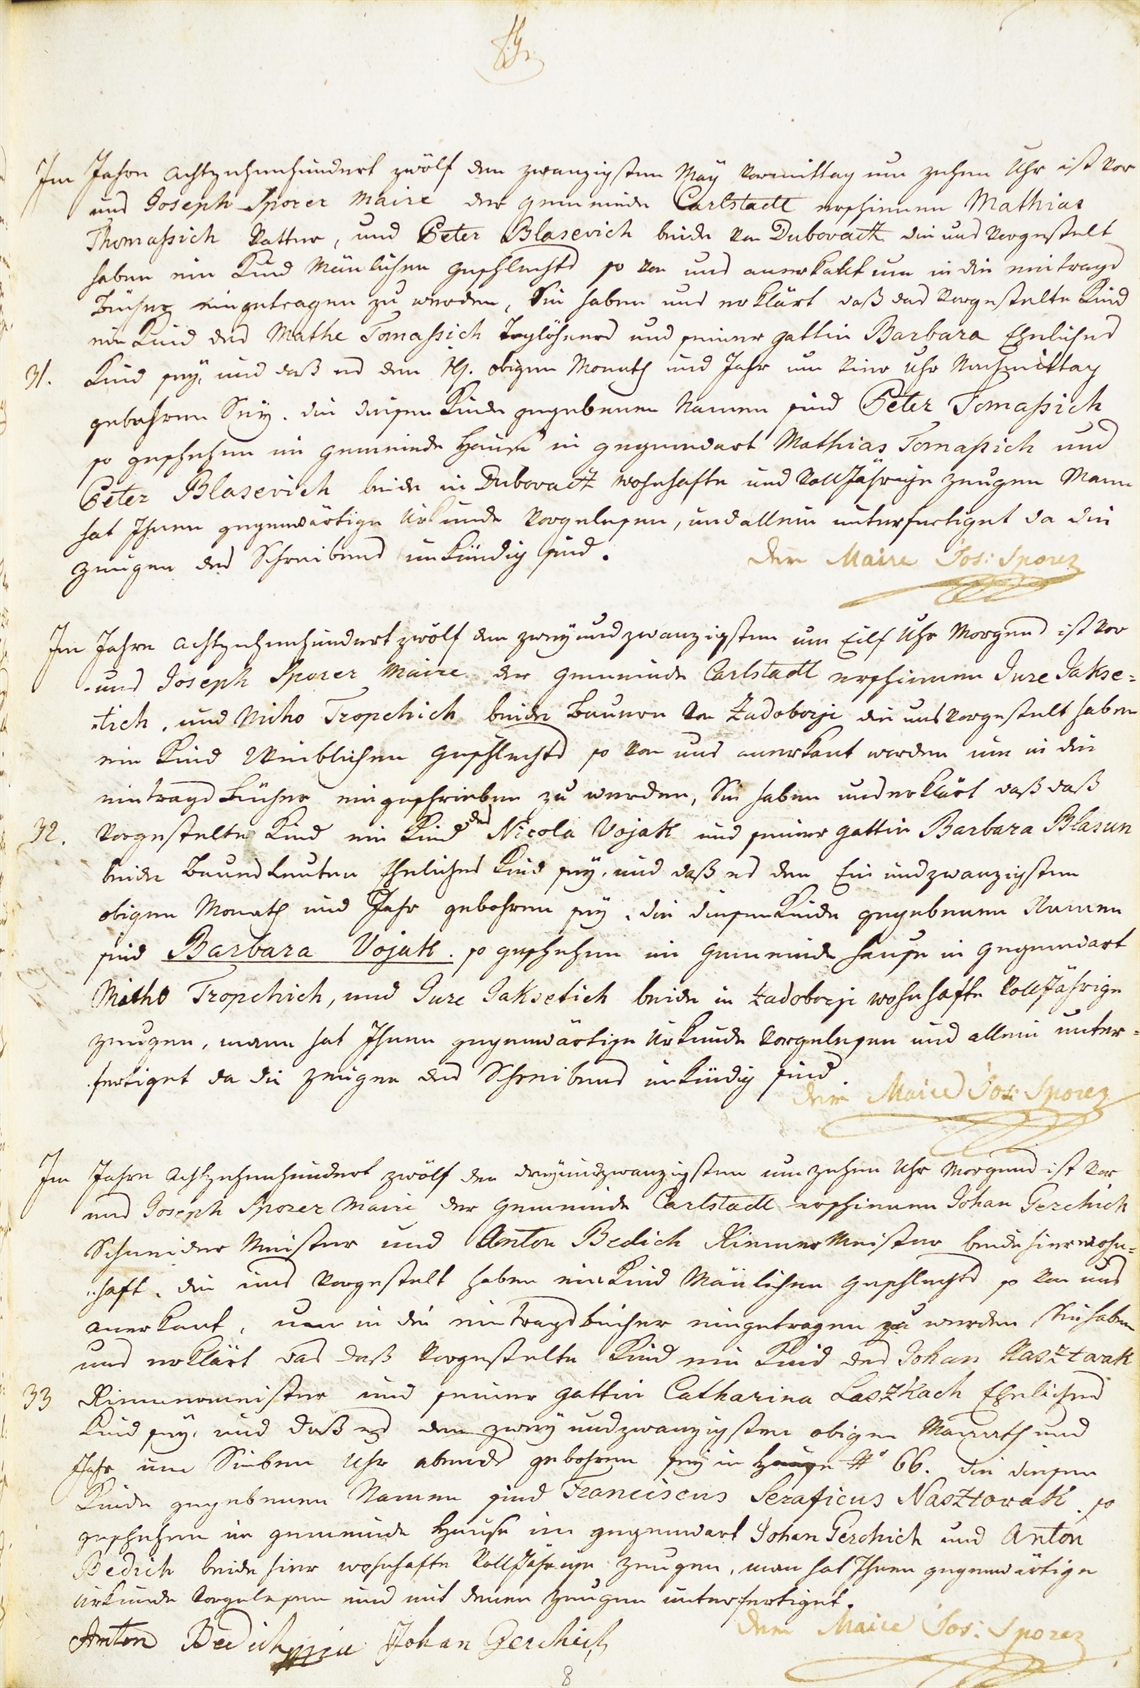 Im Jahre achtzehenhundert zwölf den zwanzigsten May Vormittag um zehen Uhr ist vor
uns Joseph Sporer Maire der gemeinde Carlstadt erschinnen Mathias
Thomassich Vatter, und Peter Blasevich beide von Dubovack die uns Vorgestelt
haben ein Kind Mänlichen geschlechts so von uns anerkakt um in die eintrags
Bücher eingetragen zu werden, Sie haben uns erklärt daß das Vorgestelte Kind
ein Kind des Mathe Tomassich Taglöhners und seiner gattin Barbara Ehelichs
31. Kind seÿ, und daß es den 19. obigen Monath und Jahr um Uhr Nachmittag
gebohren Seÿ. die diesem Kinde gegebenen Namen sind Peter Tomassich
so geschehen im gemeinde Hause in gegenwart Mathias Tomassich und
Peter Blasevich beide in Dubovack wohnhafte und VollJährige Zeugen Mann
hat Ihnen gegenwärtige Urkunde Vorgelesen, und allein unterfertiget da die
Zeugen des Schreibens unkündig sind.
Der Maire Jos: Sporer
Im Jahre achtzehenhundert zwölf den zweÿ und zwanzigsten um Eilf Uhr Morgens ist vor
uns Joseph Sporer Maire der gemeinde Carlstadt erschinnen Jure Jakse=
=tich, und Micho Tropchich beide Bauern von Zadoborje die uns Vorgestelt haben
ein Kind Weiblichen geschlechts so von uns anerkant worden um in die
eintrags Bücher eingeschrieben zu werden, Sie haben uns erklärt daß daß
32. Vorgestelte Kind ein Kind des Nicola Vojak und seiner gattin Barbara Blasun
beide Bauers Leuten Eheliches Kind seÿ, und daß es den Ein und zwanzigsten
obigen Monath und Jahr gebohren seÿ, die diesem Kinde gegebenen Namen
sind Barbara Vojak. so geschehen im gemeinde Hause in gegenwart
Micho Tropchich, und Jure Jaksetich beide in Zadoborje wohnhafte VollJährige
Zeugen, mann hat Ihnen gegenwärtige Urkunde Vorgelesen und allein unter=
fertiget da die Zeugen des Schreibens unkündig sind.
Der Maire Jos: Sporer
Im Jahre achtzehenhundert zwölf den dreÿundzwanzigsten um zehen Uhr Morgens ist vor
uns Joseph Sporer Maire der gemeinde Carlstadt erschinnen Johan Gerchich
Schneider Meister und Anton Bedich Riemer Meister beide hier wohn=
haft, die uns Vorgestelt haben ein Kind Mänlichen geschlechts so von uns
anerkant, um in die eintrags bücher eingetragen zu werden Sie haben
uns erklärt das daß Vorgestelte Kind ein Kind des Johan Nasztovak
33 Riemermeister und seiner gattin Catharina Laszkach Ehelichs
Kind seÿ, und daß es den zweÿ undzwanzigsten obigen Monath und
Jahr um Sieben Uhr abends gebohren seÿ in Hause No 66. die diesem
Kinde gegebenen Namen sind Franciscus Seraficus Nasztovak. so
geschehen im gemeinde Hause im gegenwart Johan Gerchich und Anton
Bedich beide hier wohnhafte VollJährige Zeugen, man hat Ihnen gegenwärtige
Urkunde Vorgelesen und mit denen Zeugen unterfertiget.
Anton Bedich Johan Gerchich
Der Maire Jos: Sporer
8